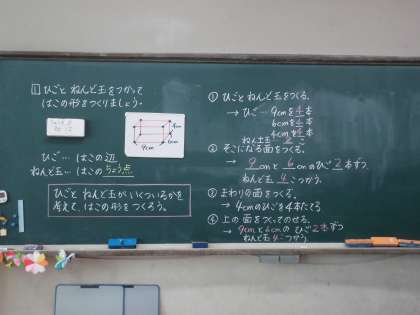 1 ひごと ねんど玉をつかって
はこの形をつくりましょう。
4cm
6cm
9cm
ひご…はこの辺
ねんど玉…はこのちょう点
ひごと ねんど玉がいくついるかを
考えて、はこの形をつくろう。
① ひごと ねんど玉をつくる。
→ ひご…9cmを4本
6cmを4本
4cmを4本
ねんど玉
② そこになる面をつくる。
→ 9cmと 6cmのひご2本ずつ
ねんど玉 4こつかう。
③ まわりの面をつくる
→ 4cmのひごを4本たてる
④ 上の面をつくってのせる。
→ 9cmと6cmの ひご2本ずつ
ねんど玉 4こつかう